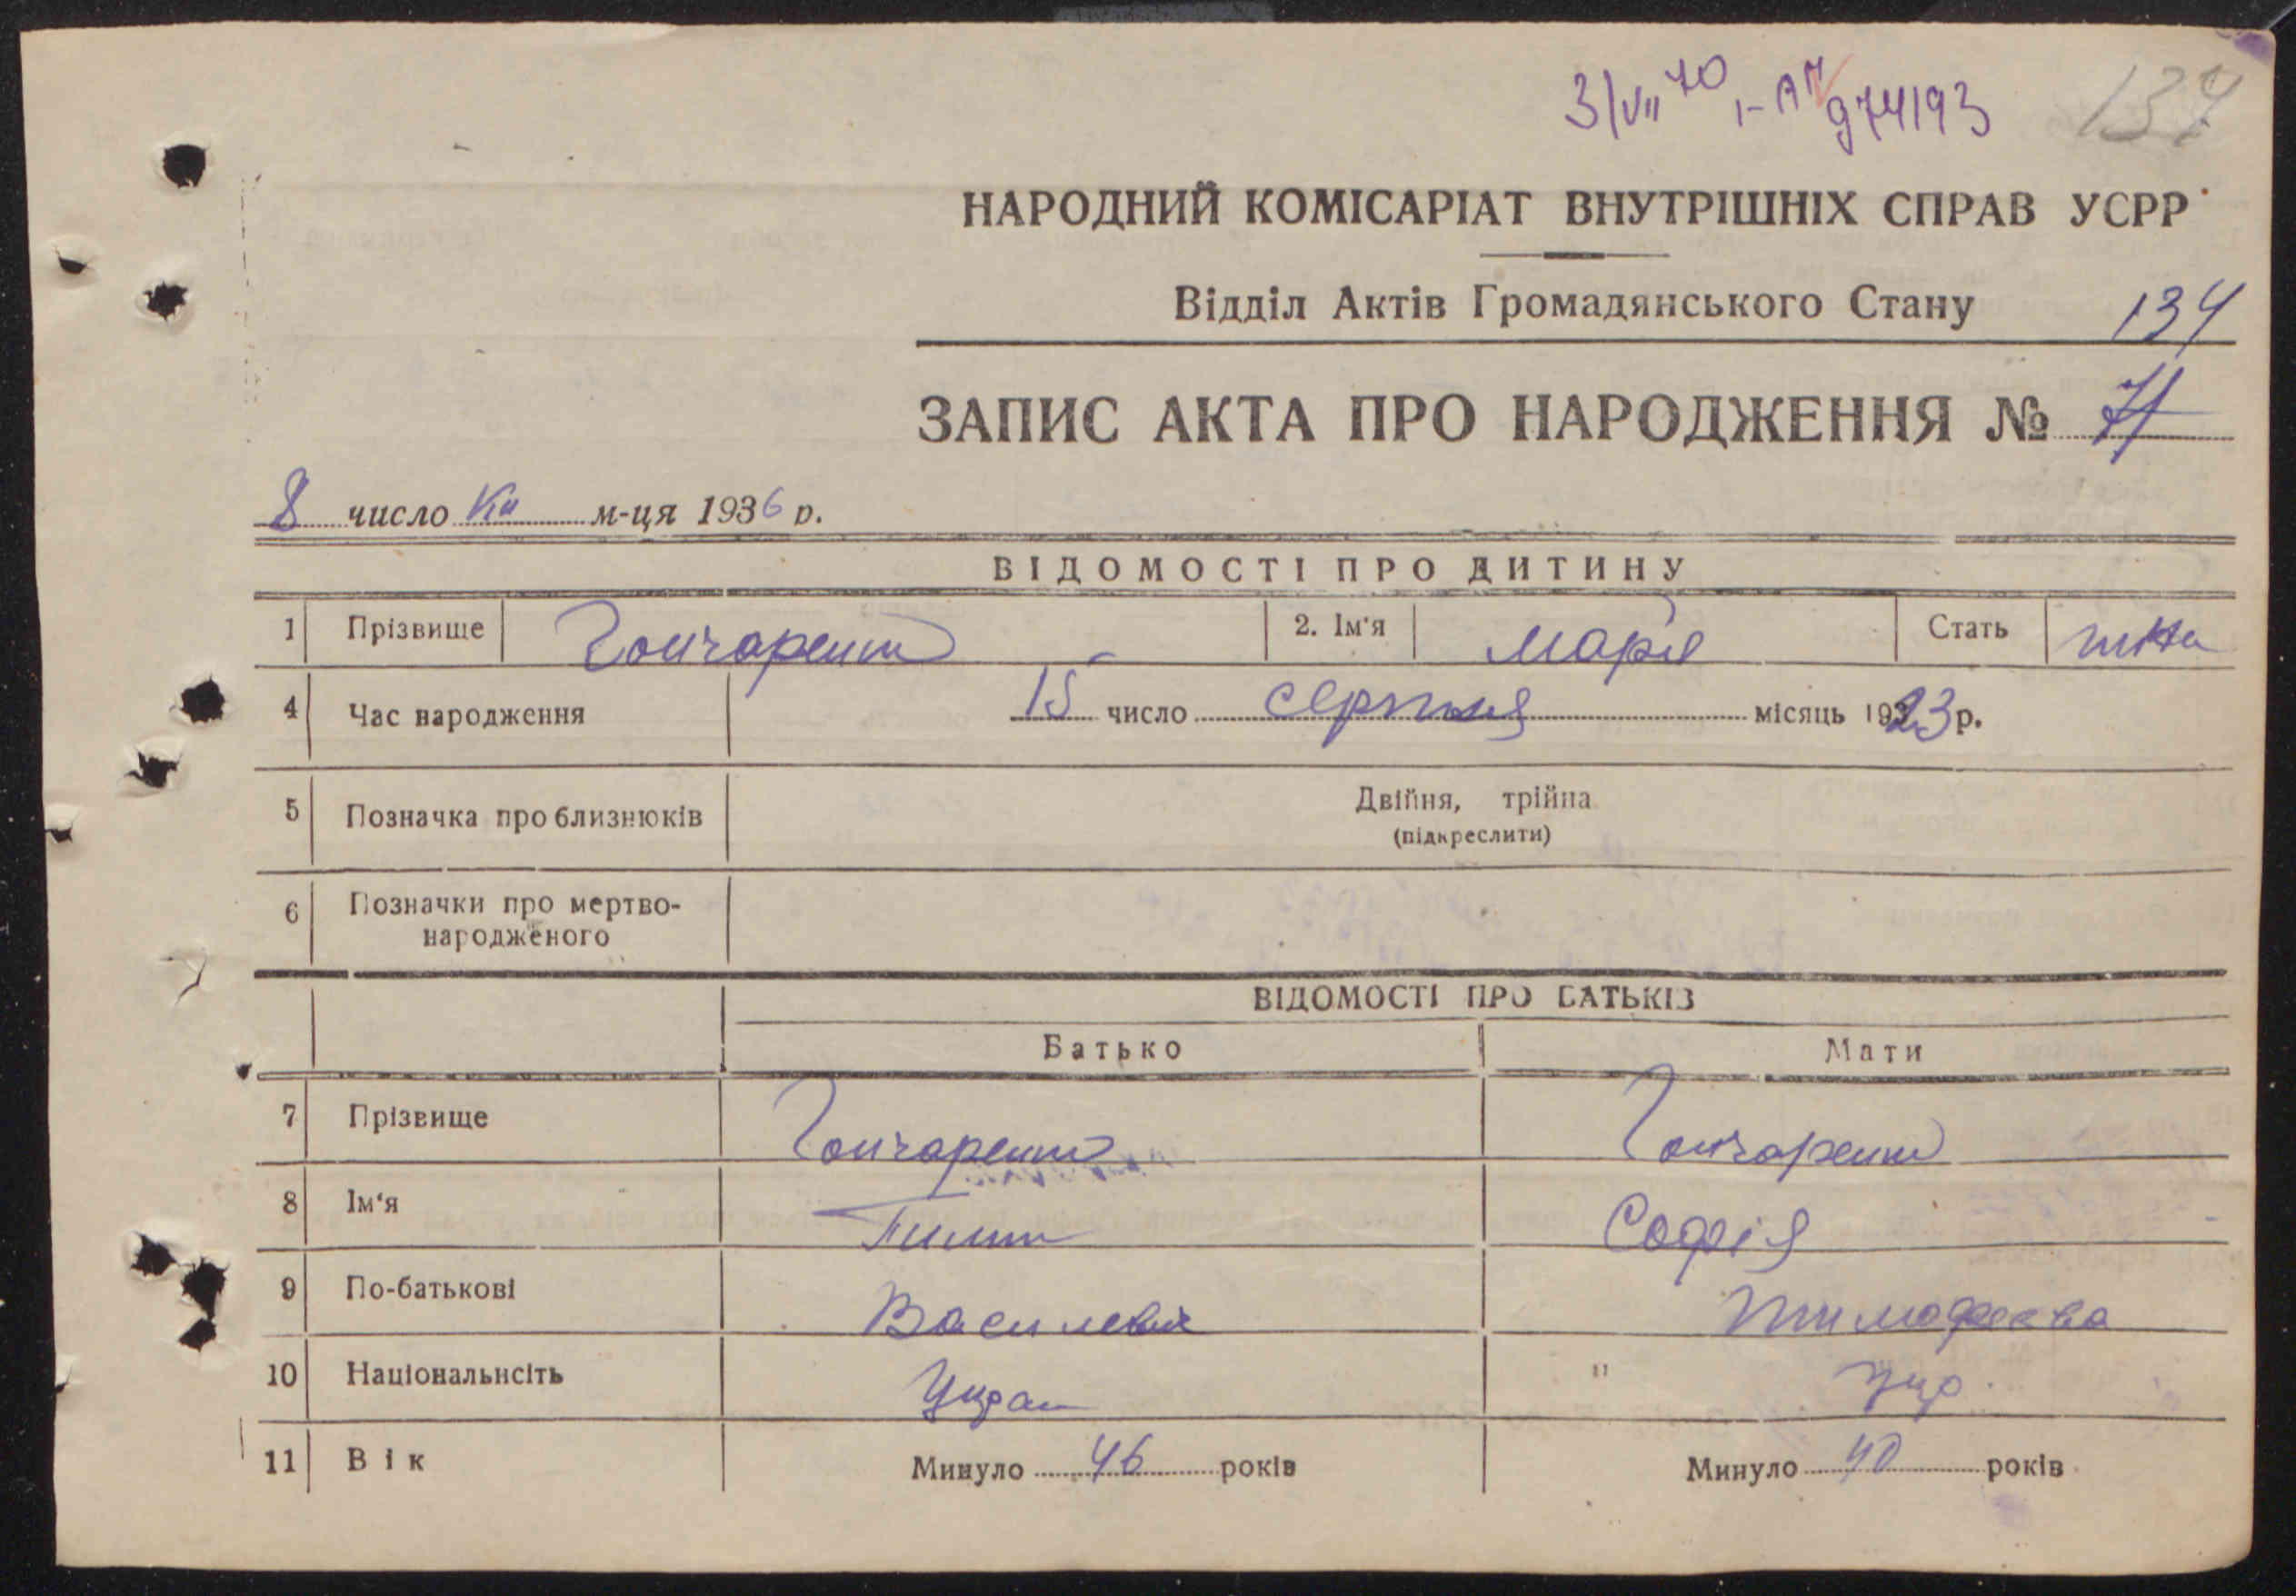 3/VII 70 I-АП 974193 137
НАРОДНИЙ КОМІСАРІАТ ВНУТРІШНІХ СПРАВ УСРР
Відділ Актів Громадянського Стану 134
ЗАПИС АКТА ПРО НАРОДЖЕННЯ № 71
8 число м-ця 1936 р.
ВІДОМОСТІ ПРО ДИТИНУ
1 Прізвище Гончаренко 2. Ім'я Марія Стать
4 Час народження 15 число серпня місяць 1923 р.
5 Позначка про близнюків Двійня, трійна
(підкреслити)
6 Позначки про мертво-
народженого
ВІДОМОСТІ ПРО БАТЬКІВ
Батько Мати
7 Прізвище Гончаренко Гончаренко
8 Ім'я Пилип Софія
9 По-батькові Василевич Тимофеева
10 Національність Украи Укр.
11 Вік Минуло 46 років Минуло 40 років